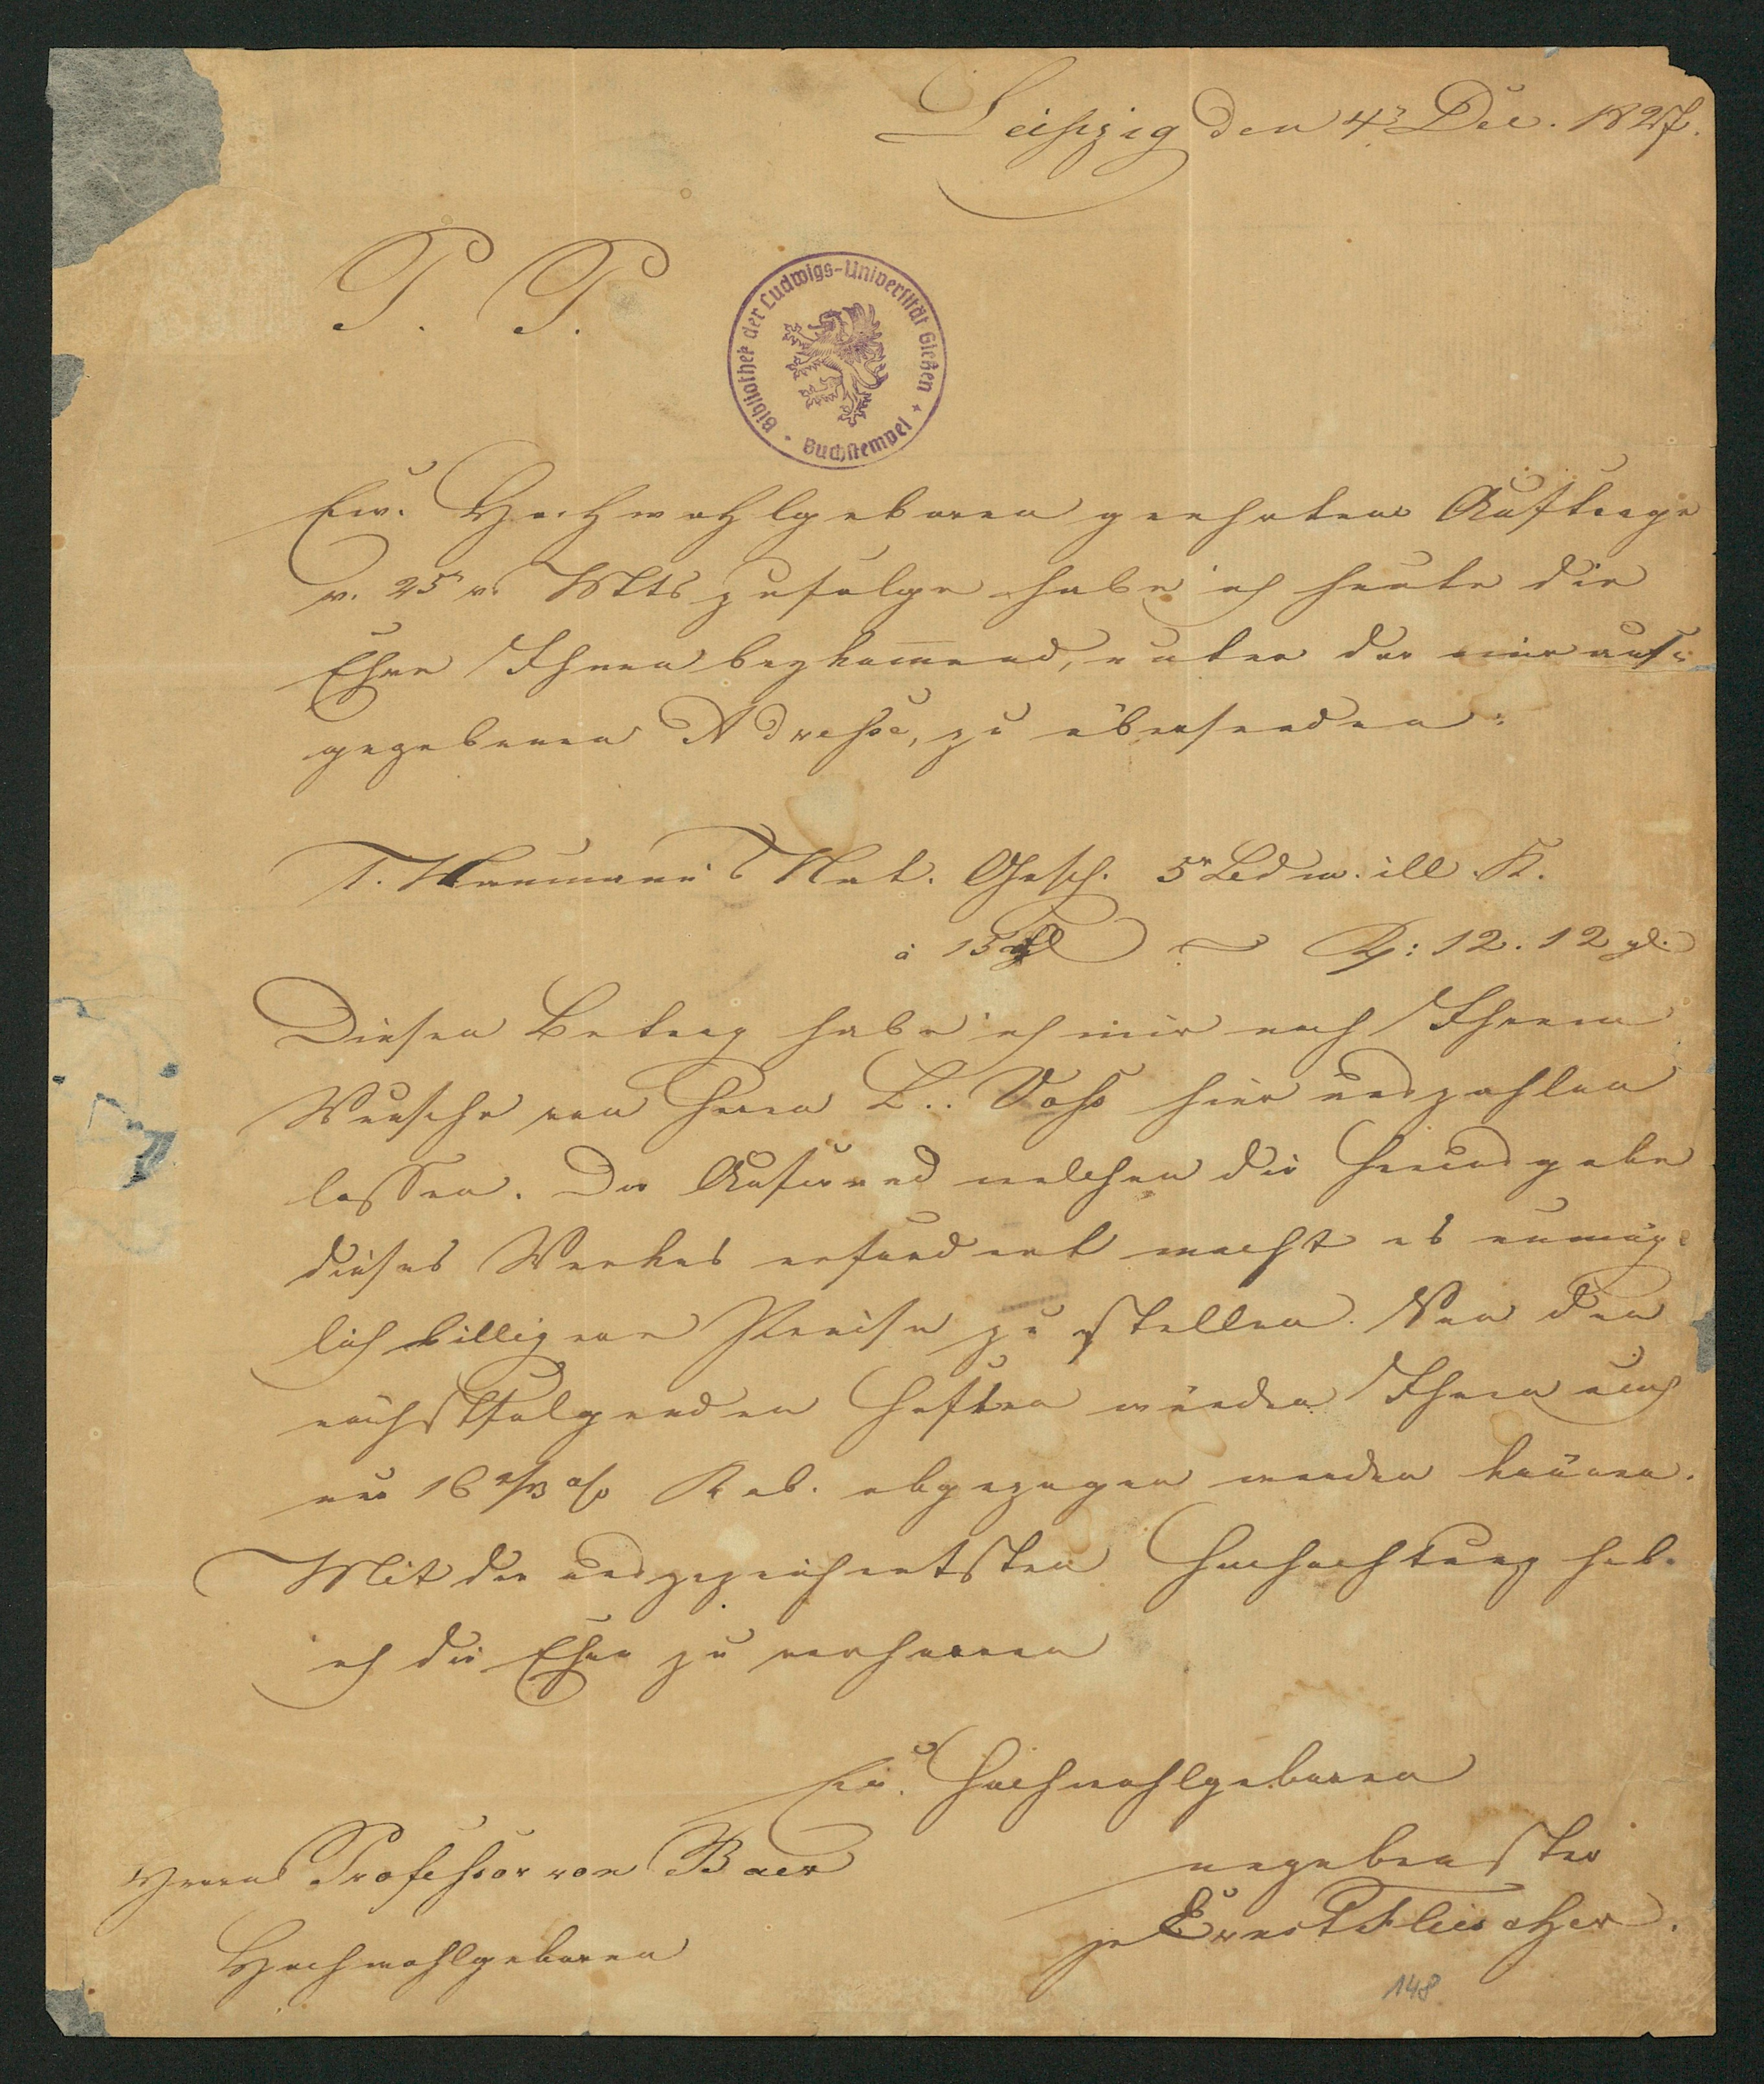 Leipzig den 4r Dec. 1827.
P. P.
Bibliothek der Ludwigs-Universität Gießen
Buchstempel
Ew. Hochwohlgeboren geehrten Auftrage
v. 25 v. Mts zufolge habe ich heute die
Ehre Ihnen beykom̄end, unter der mir auf-
gegebenen Adresse, zu übersenden:
1. Naumann's Nat. Gesch. 5r Bd m. ill. K.
à 15 12. 12 gl.
Diesen Betrag habe ich mir nach Ihrem
Wunsche von Herrn L. Voß hier auszahlen
lassen. Der Aufwand welchen die Herausgabe
dieses Werkes erfordert macht es unmög-
lich billigere Preise zu stellen. Von den
nächstfolgenden Heften würden Ihnen auch
nur 16 2/3 % Rab. abgezogen werden können.
Mit der ausgezeichnetsten Hochachtung habe
ich die Ehre zu verharren
Ew. Hochwohlgeboren
Herrn Professor von Baer
ergebenster
Ernst Fleischer.
Hochwohlgeboren
148